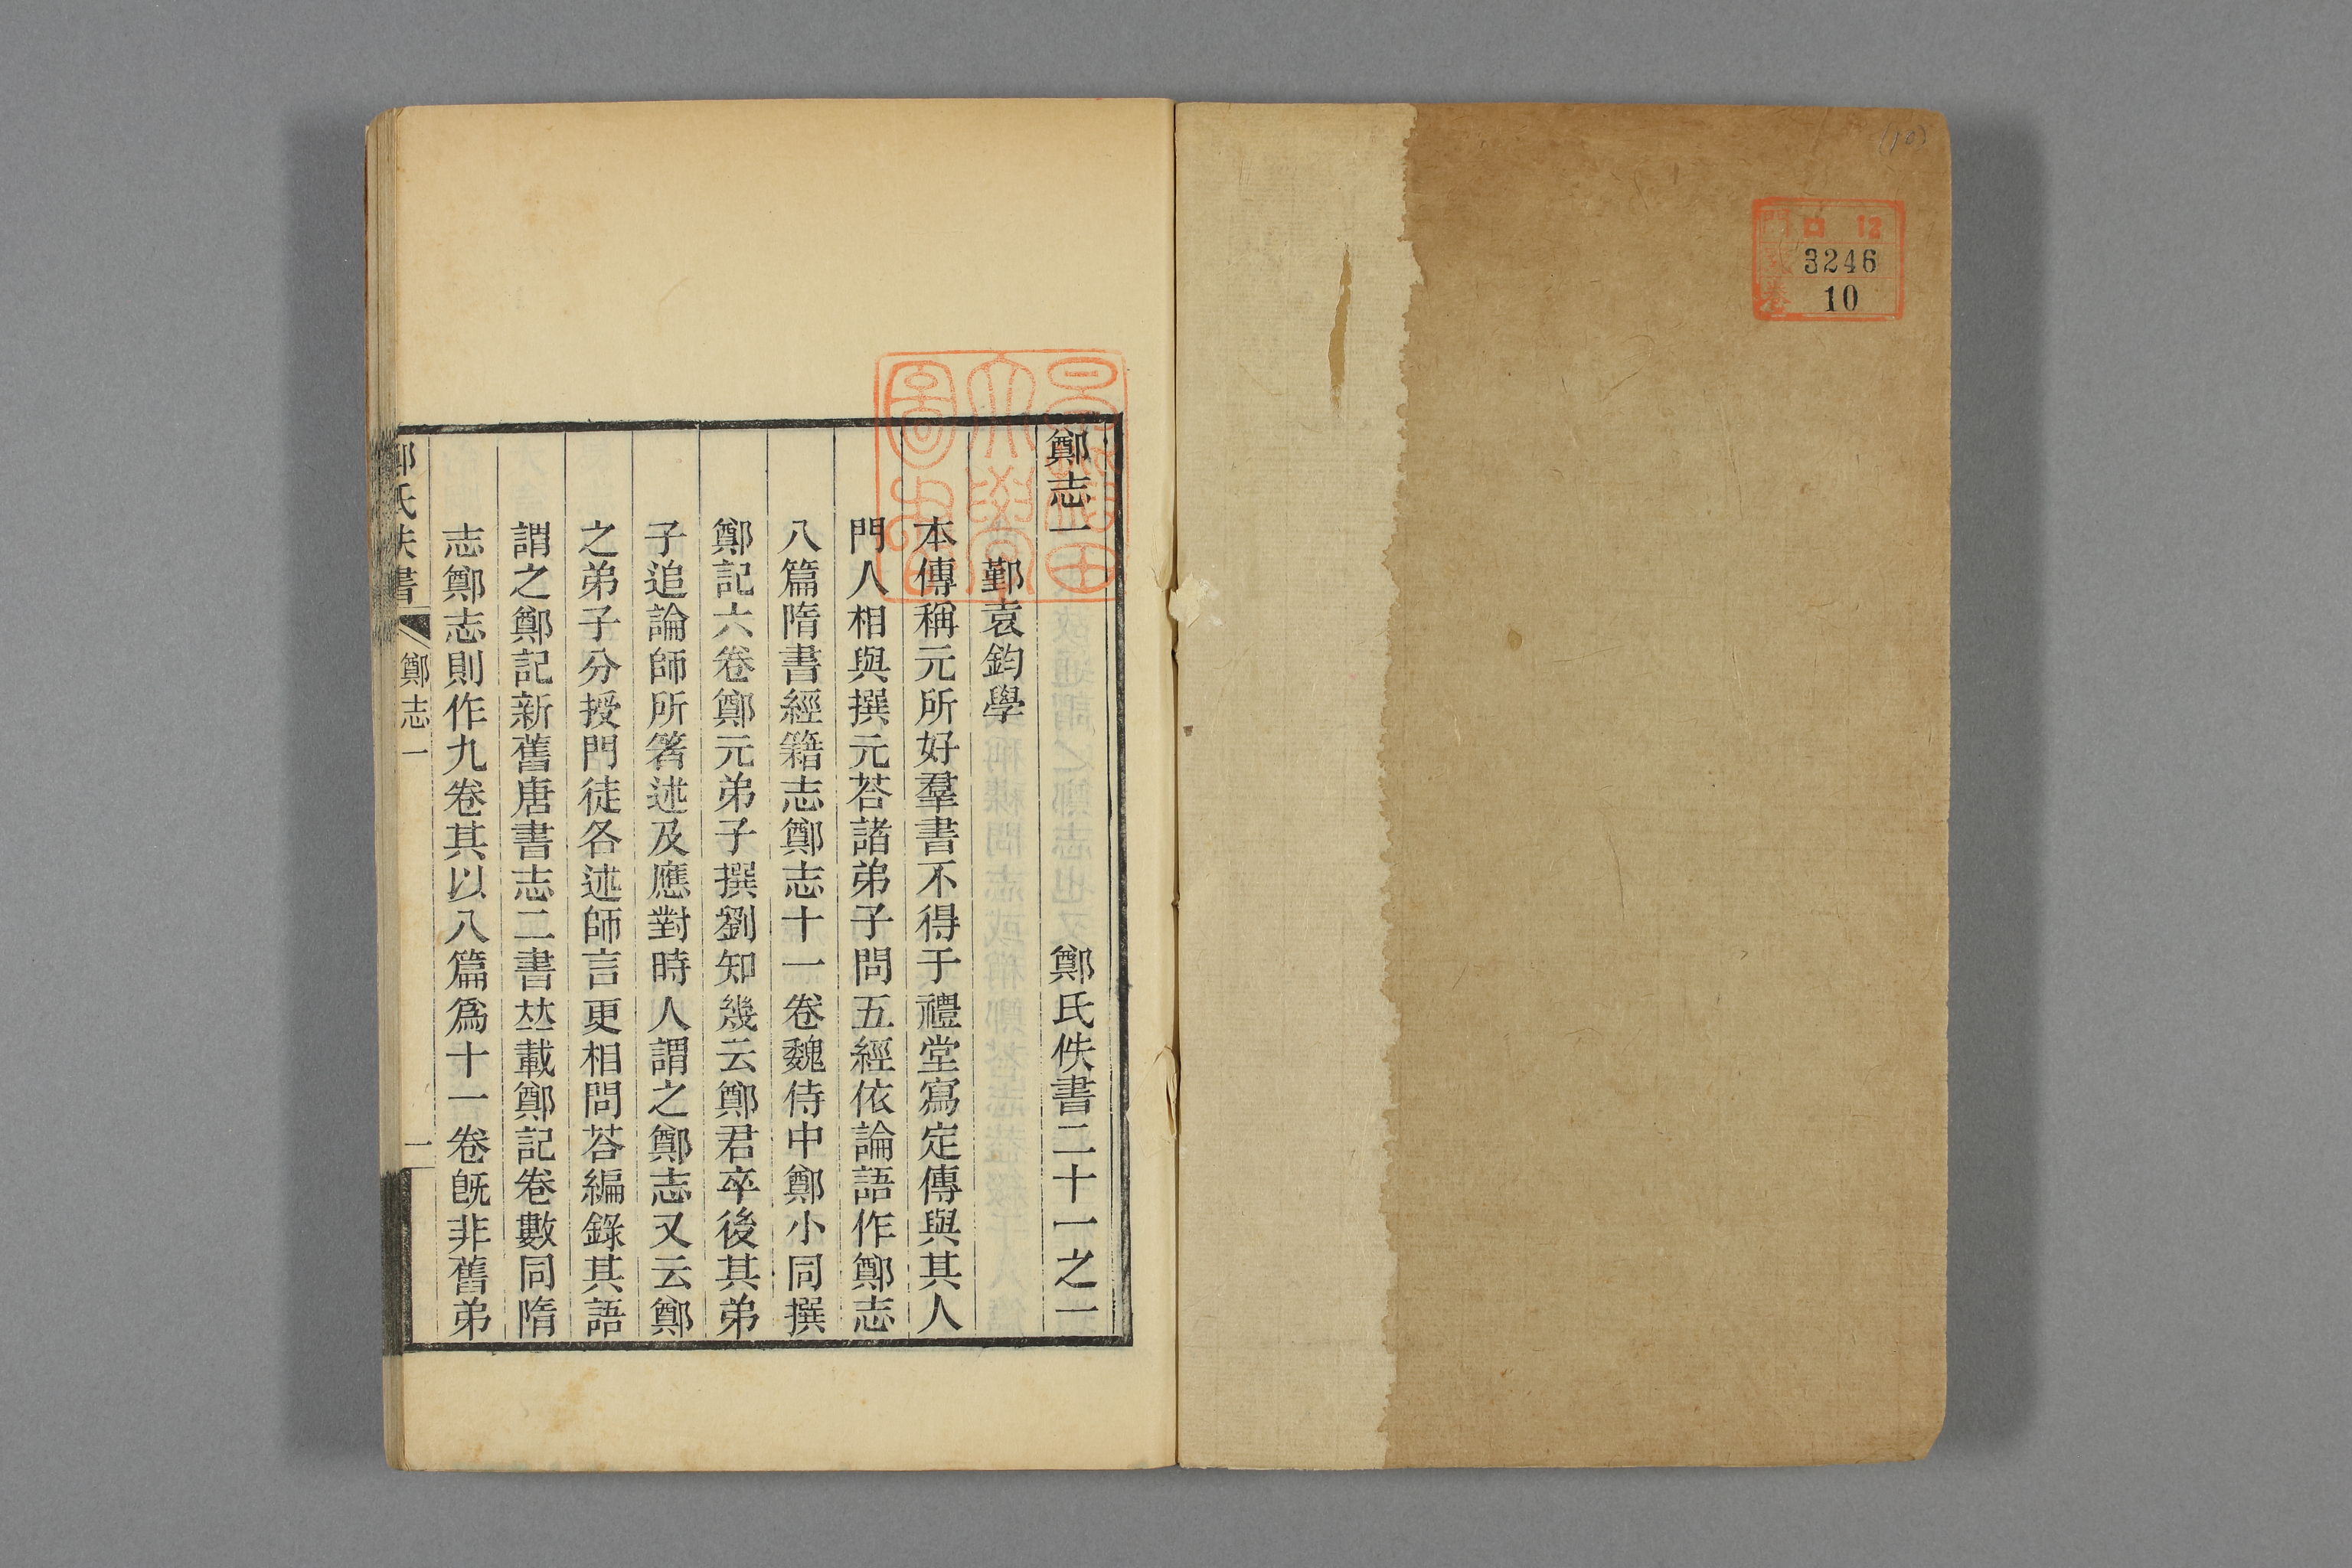 (10)
門 口 12
號 3246
卷 10
早稻田大學圖書
鄭志一 鄭氏佚書二十一之一
鄞袁鈞學
本傳稱元所好羣書不得于禮堂寫定傳與其人
門人相與撰元荅諸弟子問五經依論語作鄭志
八篇隋書經籍志鄭志十一卷魏侍中鄭小同撰
鄭記六卷鄭元弟子撰劉知幾云鄭君卒後其弟
子追論師所箸述及應對時人謂之鄭志又云鄭
之弟子分授門徒各述師言更相問荅編錄其語
謂之鄭記新舊唐書志二書竝載鄭記卷數同隋
志鄭志則作九卷其以八篇爲十一卷旣非舊弟
鄭氏佚書 鄭志一 一